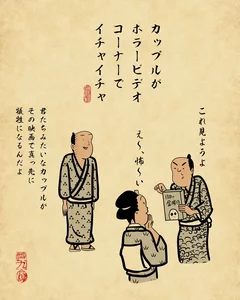 カップルが
ホラービデオ
コーナーで
イチャイチャ
これ見ようよ
え〜、怖〜い
君たちみたいなカップルが
その映画で真っ先に
犠牲になるんだよ